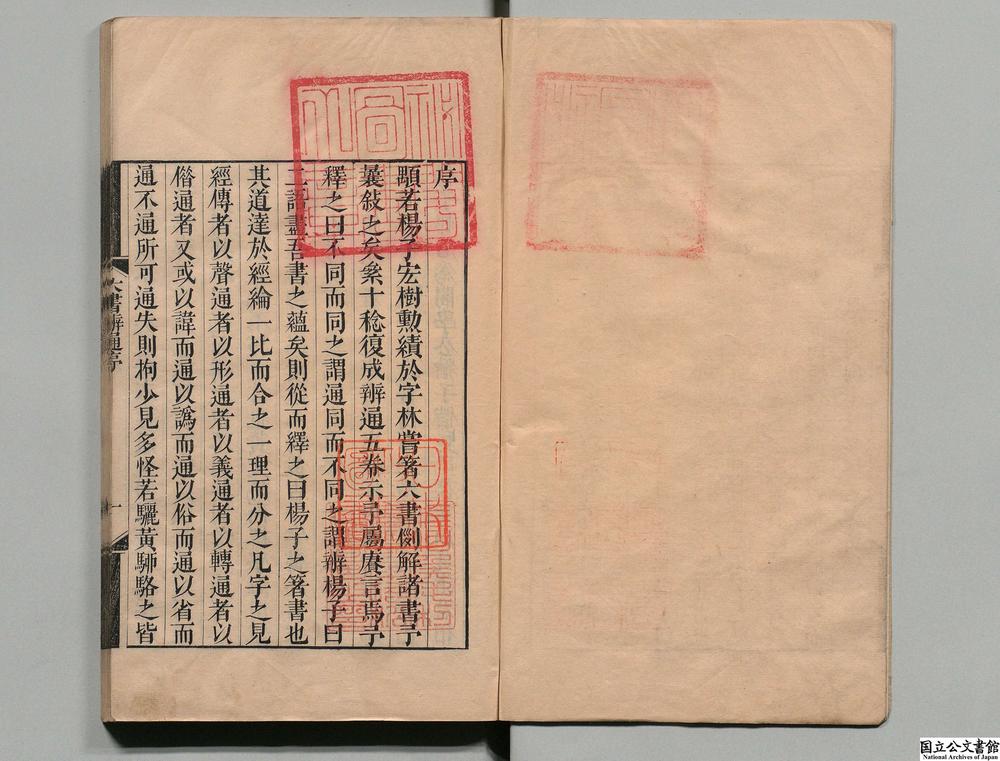 序
顒若楊子宏樹勳績於字林嘗箸六書例解諸書予
曩敍之矣絫十稔復成辨通五卷示予屬賡言焉予
釋之曰不同而同之謂通同而不同之謂辨楊子曰
二語盡吾書之蘊矣則從而釋之曰楊子之箸書也
其道達於經綸一比而合之一理而分之凡字之見
經傳者以聲通者以形通者以義通者以轉通者以
偕通者又或以諱而通以譌而通以俗而通以省而
通不通所可通失則拘少見多怪若驪黃駵駱之皆
六書辨通序
一
国立公文書館
National Archives of Japan